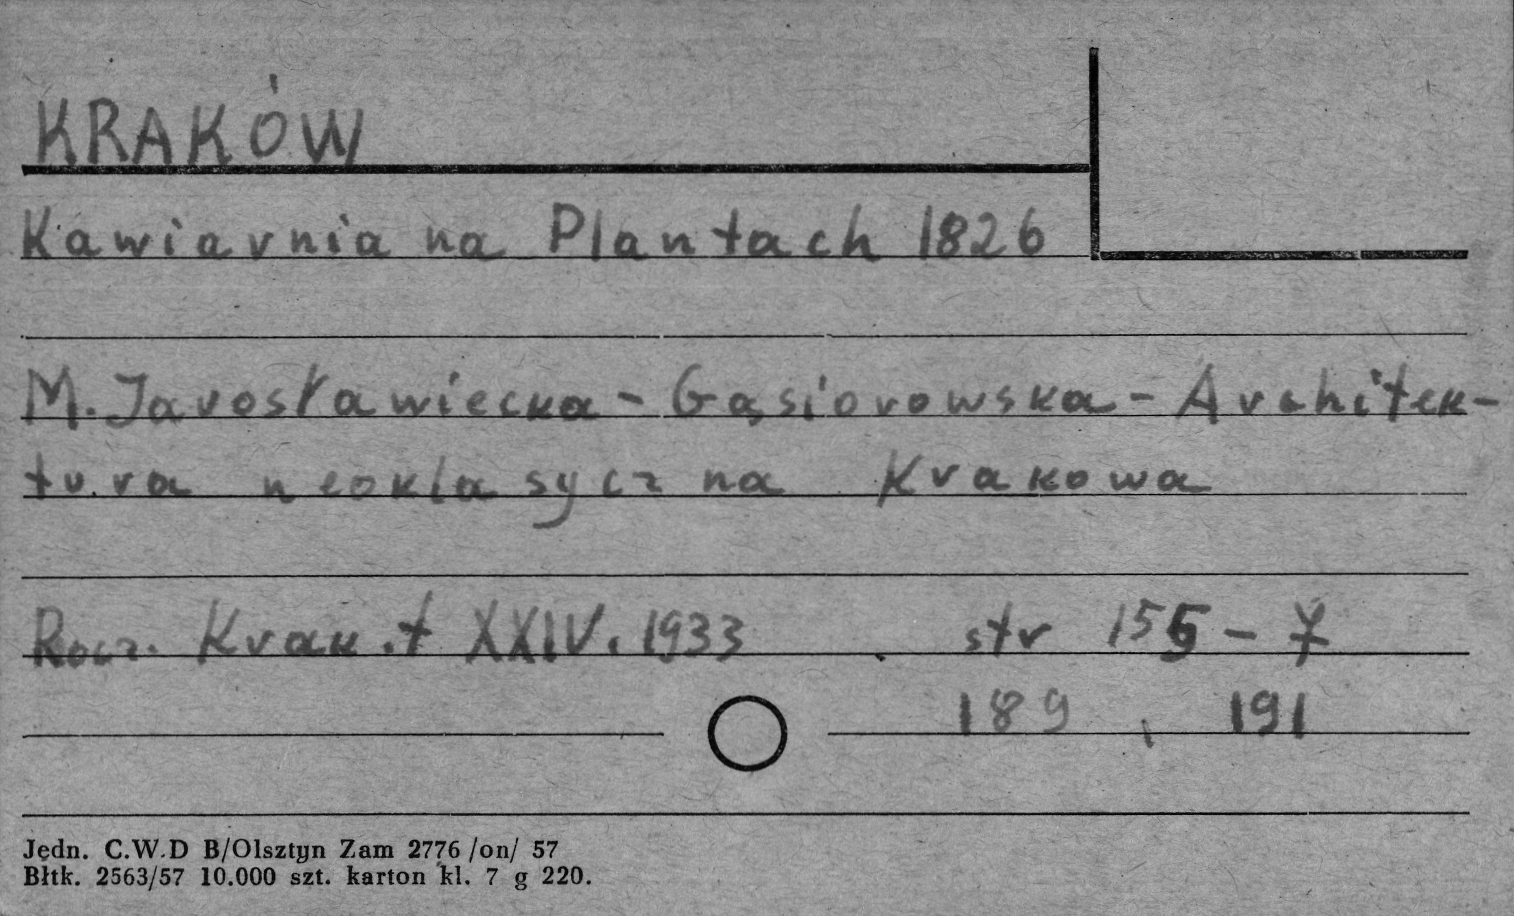 KRAKÓW
Kawiarnia na Plantach 1826
M. Jarosławiecka - Gąsiorowska - Architek-
tura neoklasyczna Krakowa
Rocz. Krak. t XXIV. 1933 str 156 - 7
189, 191
Jędn. C.W.D B/Olsztyn Zam 2776 /on/ 57
Błtk. 2563/57 10.000 szt. karton kl. 7 g 220.